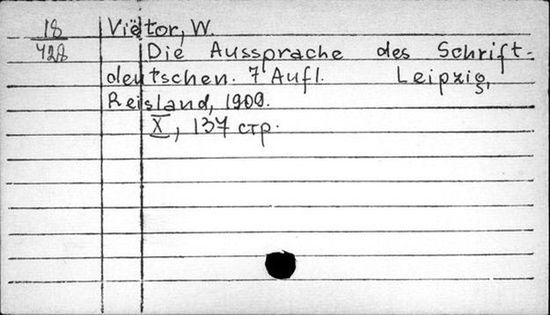 18 Viëtor, W.
428 Die Aussprache des Schrift-
deutschen. 7 Aufl. Leipzig,
Reisland, 1909.
X, 137 стр.